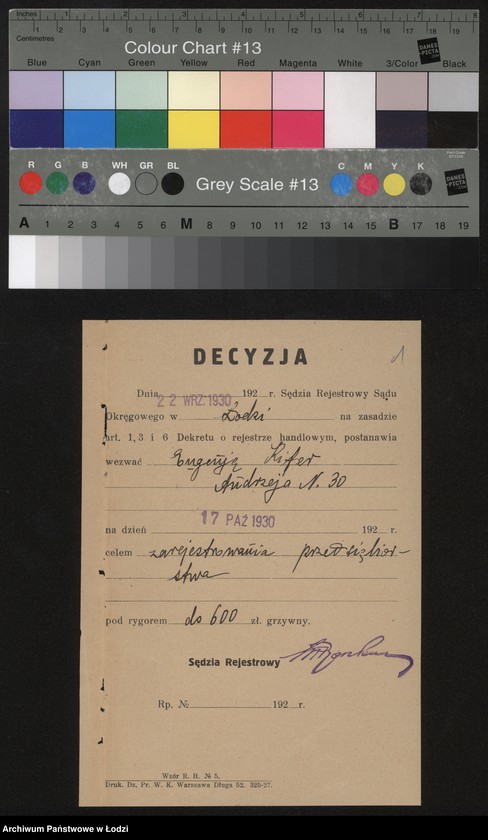 Inches 1 2 3 4 5 6 7 8
Centimetres 1 2 3 4 5 6 7 8 9 10 11 12 13 14 15 16 17 18 19
Colour Chart #13
DANES-PICTA
Blue Cyan Green Yellow Red Magenta White 3/Color Black
R G B WH GR BL Grey Scale #13 C M Y K
DANES-PICTA
A 1 2 3 4 5 6 M 8 9 10 11 12 13 14 15 B 17 18 19
1
DECYZJA
Dnia 22 WRZ.1930 192 r. Sędzia Rejestrowy Sądu
Okręgowego w Łodzi na zasadzie
art. 1, 3 i 6 Dekretu o rejestrze handlowym, postanawia
wezwać Eugenję Kifer
Andrzeja N. 30
na dzień 17 PAŹ 1930 192 r.
celem zarejestrowania przedsiębior-
stwa
pod rygorem do 600 zł. grzywny.
Sędzia Rejestrowy
Rp. № 192 r.
Wzór R. H. № 5.
Druk. Dz. Pr. W. K. Warszawa Długa 52. 325-27.
Archiwum Państwowe w Łodzi